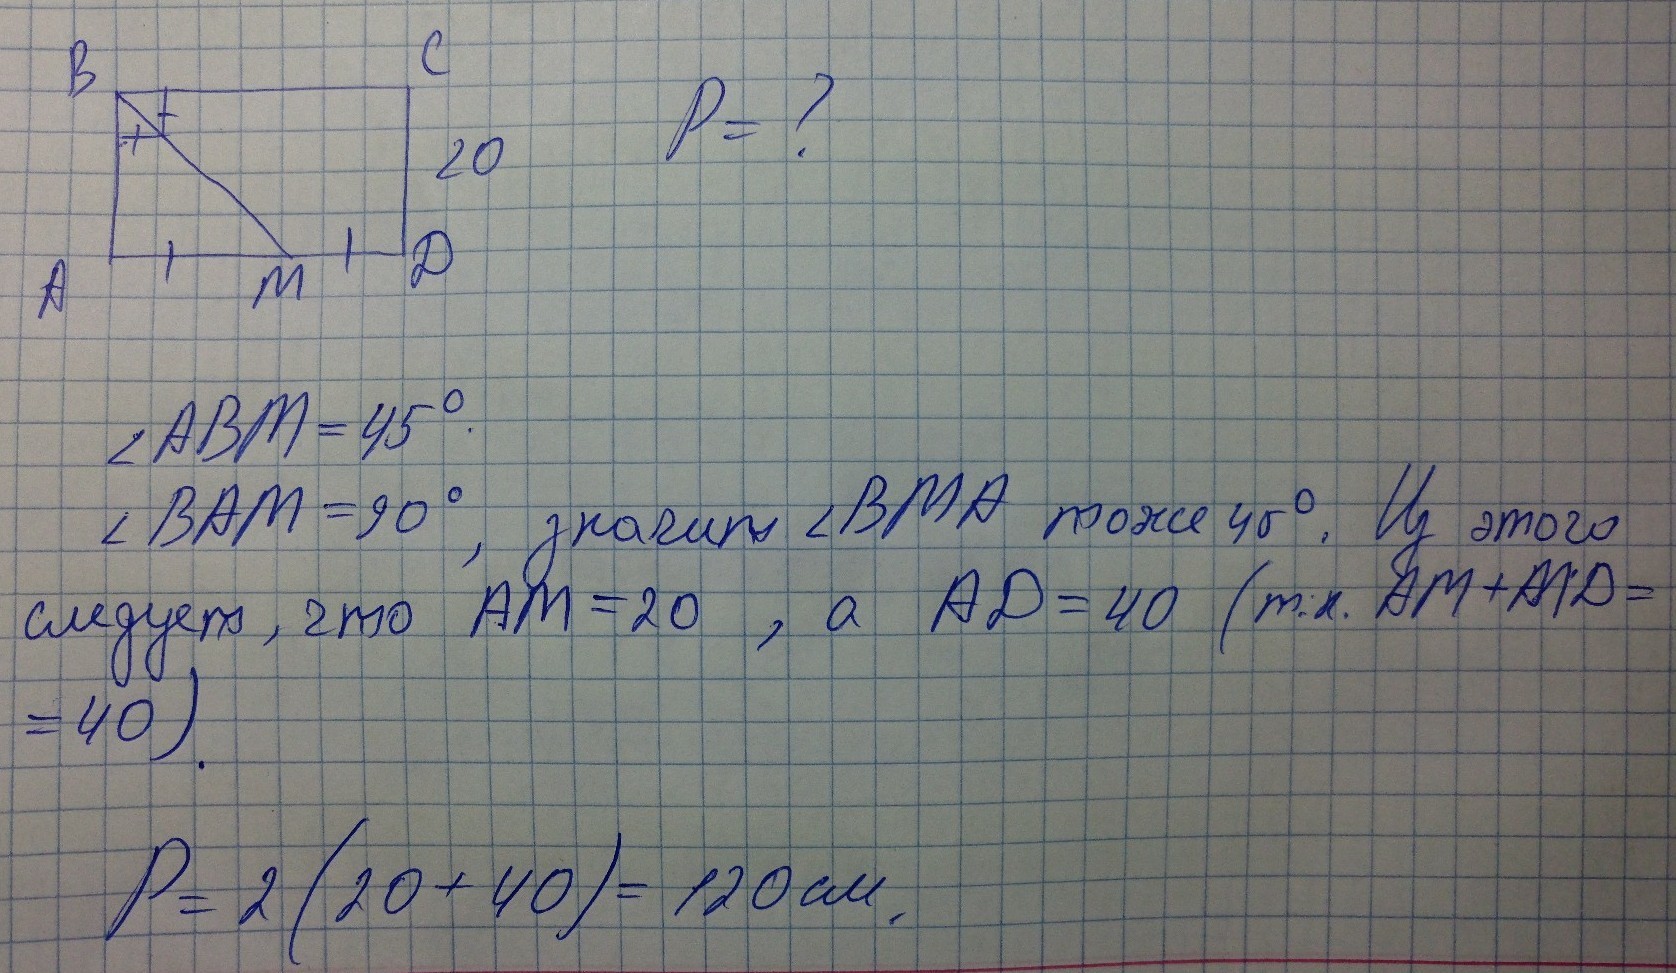 B C
P = ?
20
A M D
∠ABM = 45°.
∠BAM = 90°, значит ∠BMA тоже 45°. Из этого
следует, что AM = 20, а AD = 40 (т.к. AM + MD =
= 40).
P = 2(20 + 40) = 120 см.